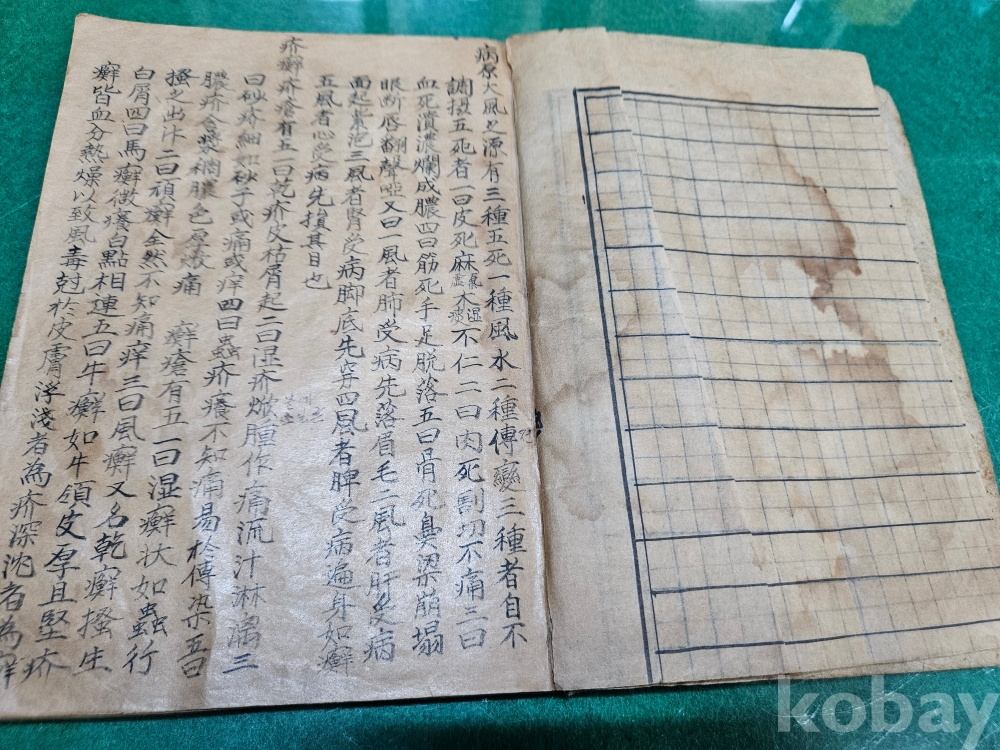 病原大風之源有三種五死一種風水二種傳變三種者自不
調摂五死者一曰皮死麻氣虛木湿痰不仁二曰肉死割切不痛三曰
血死潰濃爛成膿四曰筋死手足脫落五曰骨死鼻梁崩塌
眼断唇翻聲啞又曰一風者肺受病先落眉毛二風者肝受病
面起紫泡三風者腎受病脚底先穿四風者脾受病遍身如癬
五風者心受病先損其目也
疥癬疥瘡有五一曰乾疥皮枯屑起二曰湿疥焮腫作痛流汁淋漓三
曰砂疥細如砂子或痛或痒四曰蟲疥癢不知痛易於傳染五曰
膿疥含漿稠膿色厚焮痛 癬瘡有五一曰湿癬状如蟲行
搔之出汁二曰頑癬全然不知痛痒三曰風癬又名乾癬搔生
白屑四曰馬癬微癢白點相連五曰牛癬如牛領皮厚且堅疥
癬皆血分熱燥以致風毒尅於皮膚浮淺者為疥深沈者為癬
kobay